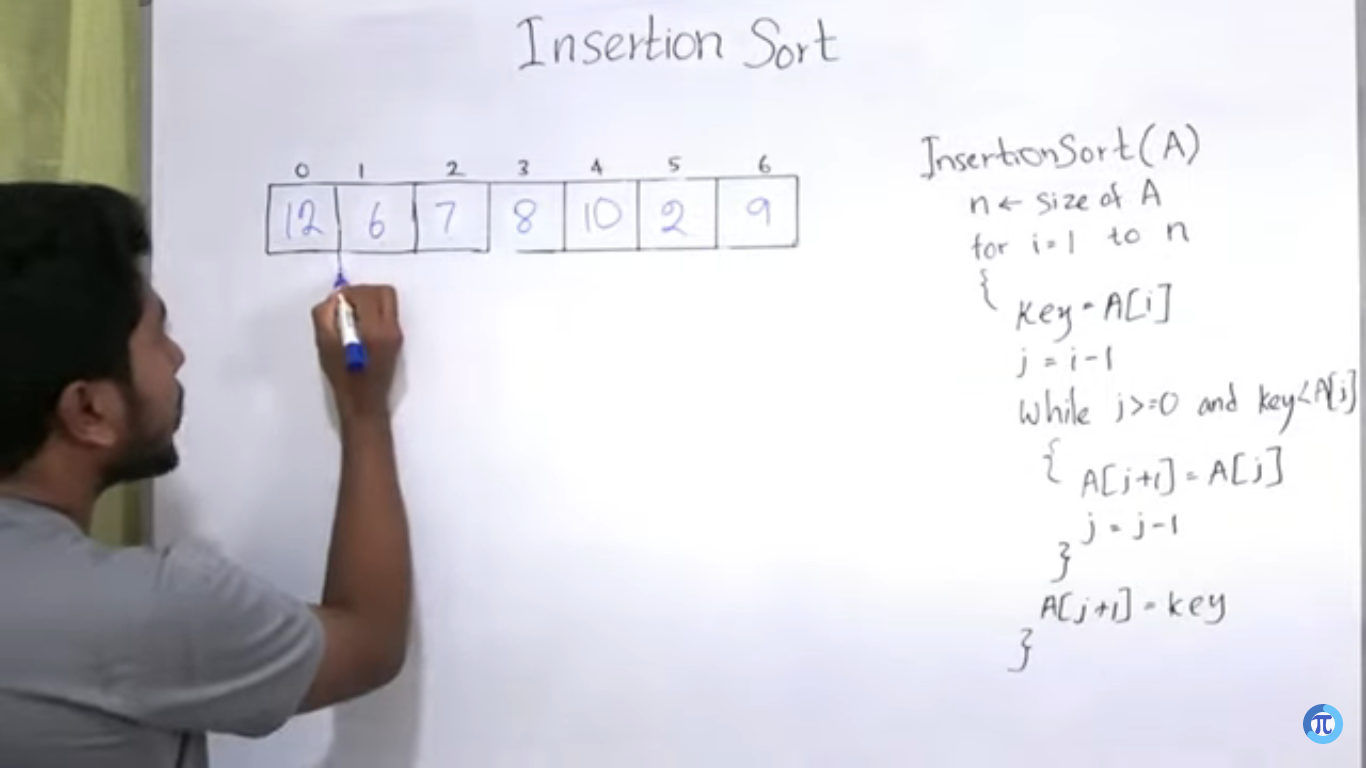 Insertion Sort
0 1 2 3 4 5 6
12 6 7 8 10 2 9
InsertionSort(A)
n ← size of A
for i=1 to n
{
key = A[i]
j = i-1
while j>=0 and key<A[j]
{ A[j+1] = A[j]
j = j-1
}
A[j+1] = key
}
π